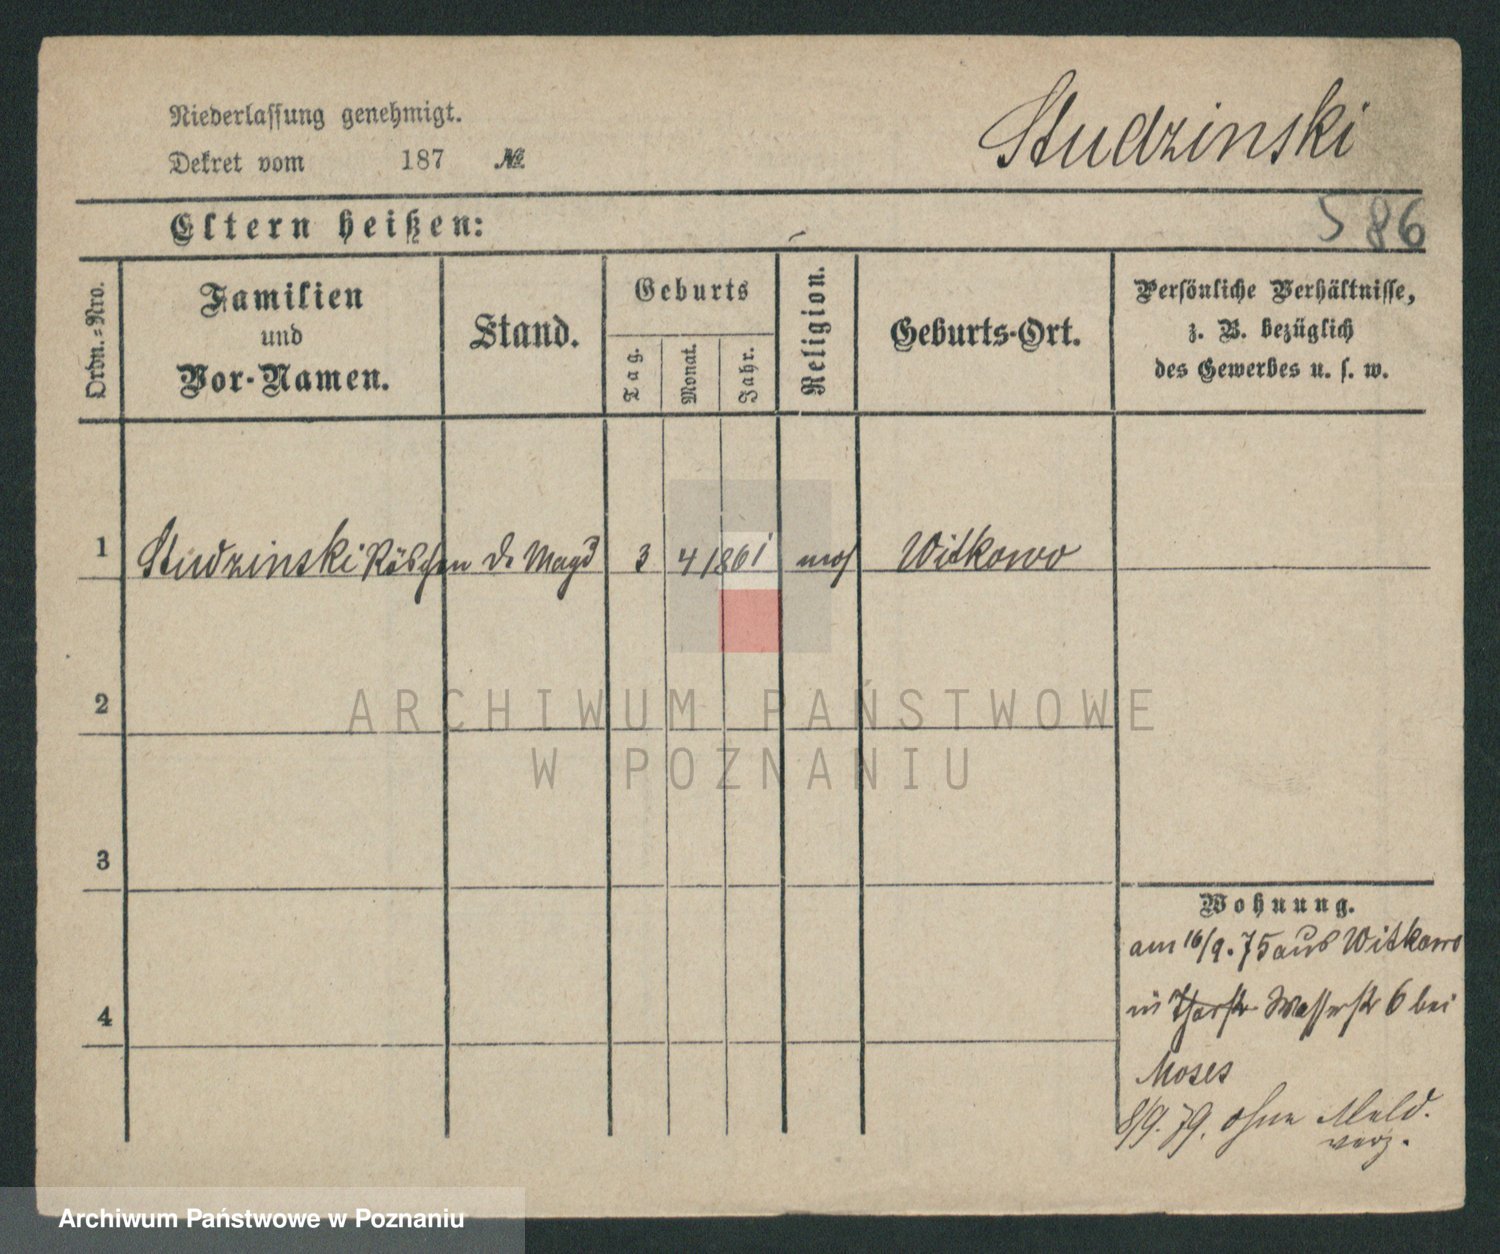 Niederlassung genehmigt.
Dekret vom 187 №
Studzinski
586
Eltern heißen:
Ordn.-Nro.
Familien
und
Vor-Namen.
Stand.
Geburts
Tag.
Monat.
Jahr.
Religion.
Geburts-Ort.
Persönliche Verhältnisse,
z. B. bezüglich
des Gewerbes u. s. w.
1 Studzinski Röschen d. Magd 3 4 1861 mos Witkowo
2
ARCHIWUM PAŃSTWOWE
W POZNANIU
3
4
Wohnung.
am 16/9.75 aus Witkowo
in Wasserstr 6 bei
Moses
8/9.79. ohne Meld.
verz.
Archiwum Państwowe w Poznaniu